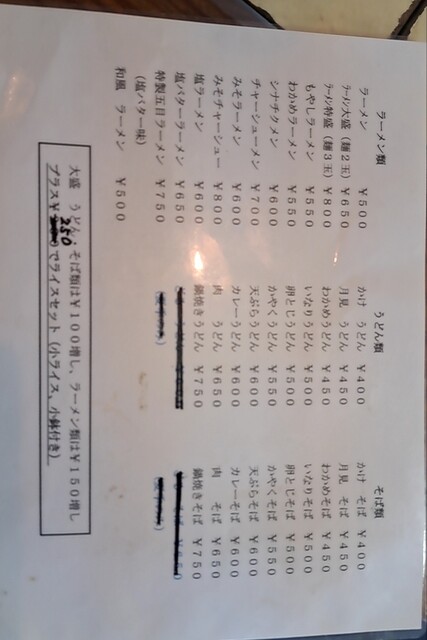 ラーメン類
ラーメン ￥５００
ラーメン大盛（麺２玉）￥６５０
ラーメン特盛（麺３玉）￥８００
もやしラーメン ￥５５０
わかめラーメン ￥５５０
シナチクメン ￥６００
チャーシューメン ￥７００
みそラーメン ￥６００
みそチャーシュー ￥８００
塩ラーメン ￥６００
塩バターラーメン ￥６５０
特製五目ラーメン ￥７５０
（塩バター味）
和風 ラーメン ￥５００
うどん類
かけ うどん ￥４００
月見 うどん ￥４５０
わかめうどん ￥４５０
いなりうどん ￥５００
卵とじうどん ￥５００
かやくうどん ￥５５０
天ぷらうどん ￥６００
カレーうどん ￥６００
肉 うどん ￥６５０
鍋焼きうどん ￥７５０
そば類
かけ そば ￥４００
月見 そば ￥４５０
わかめそば ￥４５０
いなりそば ￥５００
卵とじそば ￥５００
かやくそば ￥５５０
天ぷらそば ￥６００
カレーそば ￥６００
肉 そば ￥６５０
鍋焼きそば ￥７５０
大盛 うどん・そば類は￥１００増し、ラーメン類は￥１５０増し
プラス￥250でライスセット（小ライス、小鉢付き）